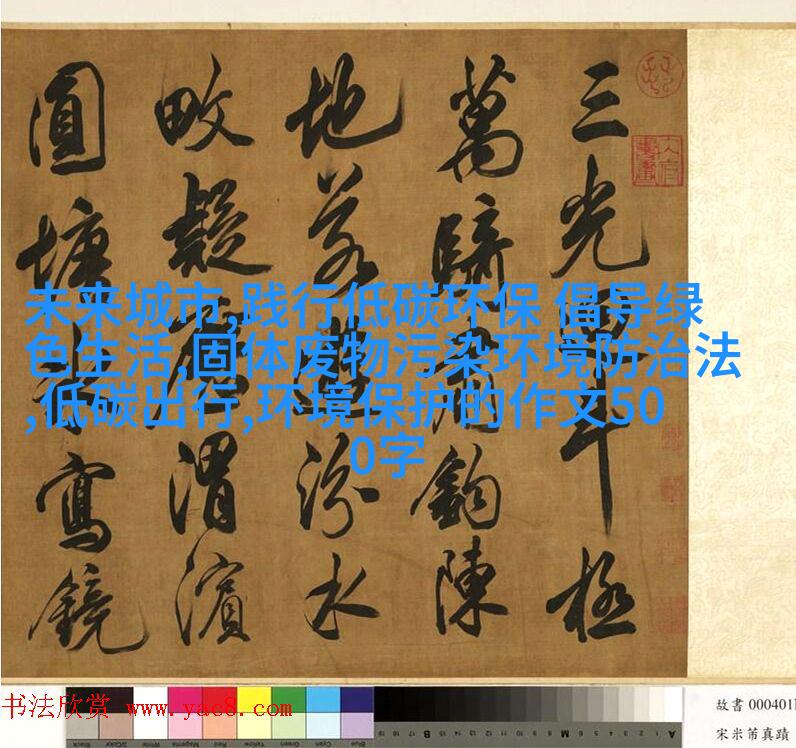 三光十極
萬鈞陳
地汾水
畋疑渭濱
圓塘寫鏡
未来城市,践行低碳环保 倡导绿
色生活,固体废物污染环境防治法
,低碳出行,环境保护的作文50
0字
书法欣赏 www.yac8.com
故書 000401
宋米芾真蹟